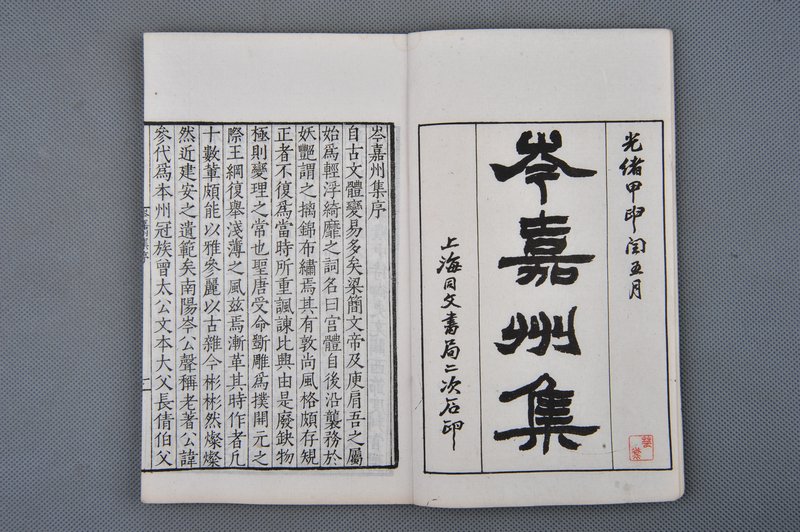 光緒甲申閏五月
岑嘉州集
上海同文書局二次石印
岑嘉州集序
自古文體變易多矣梁簡文帝及庾肩吾之屬
始爲輕浮綺靡之詞名曰宫體自後沿襲務於
妖艷謂之摛錦布繡焉其有敦尚風格頗存規
正者不復爲當時所重諷諫比興由是廢缺物
極則變理之常也聖唐受命斵雕爲樸開元之
際王綱復舉淺薄之風兹焉漸革其時作者凡
十數輩頗能以雅參麗以古雜今彬彬然燦燦
然近建安之遺範矣南陽岑公聲稱老著公諱
參代爲本州冠族曾太公文本大父長倩伯父